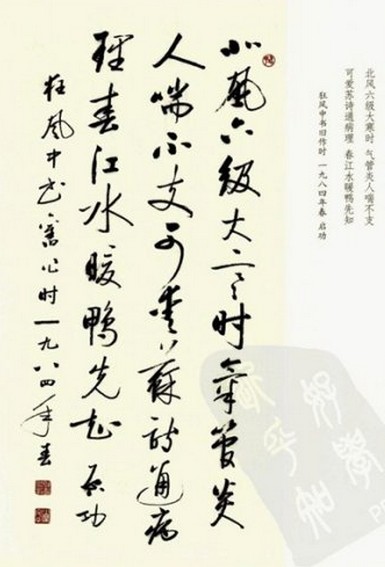 北风六级大寒时 气管炎人喘不支
可爱苏诗通病理 春江水暖鸭先知
狂风中书旧作时 一九八四年春 启功
北風六级大寒时氣管炎
人喘不支可爱蘇詩通病
理春江水暖鴨先知 启功
狂風中书舊作时一九八四年春